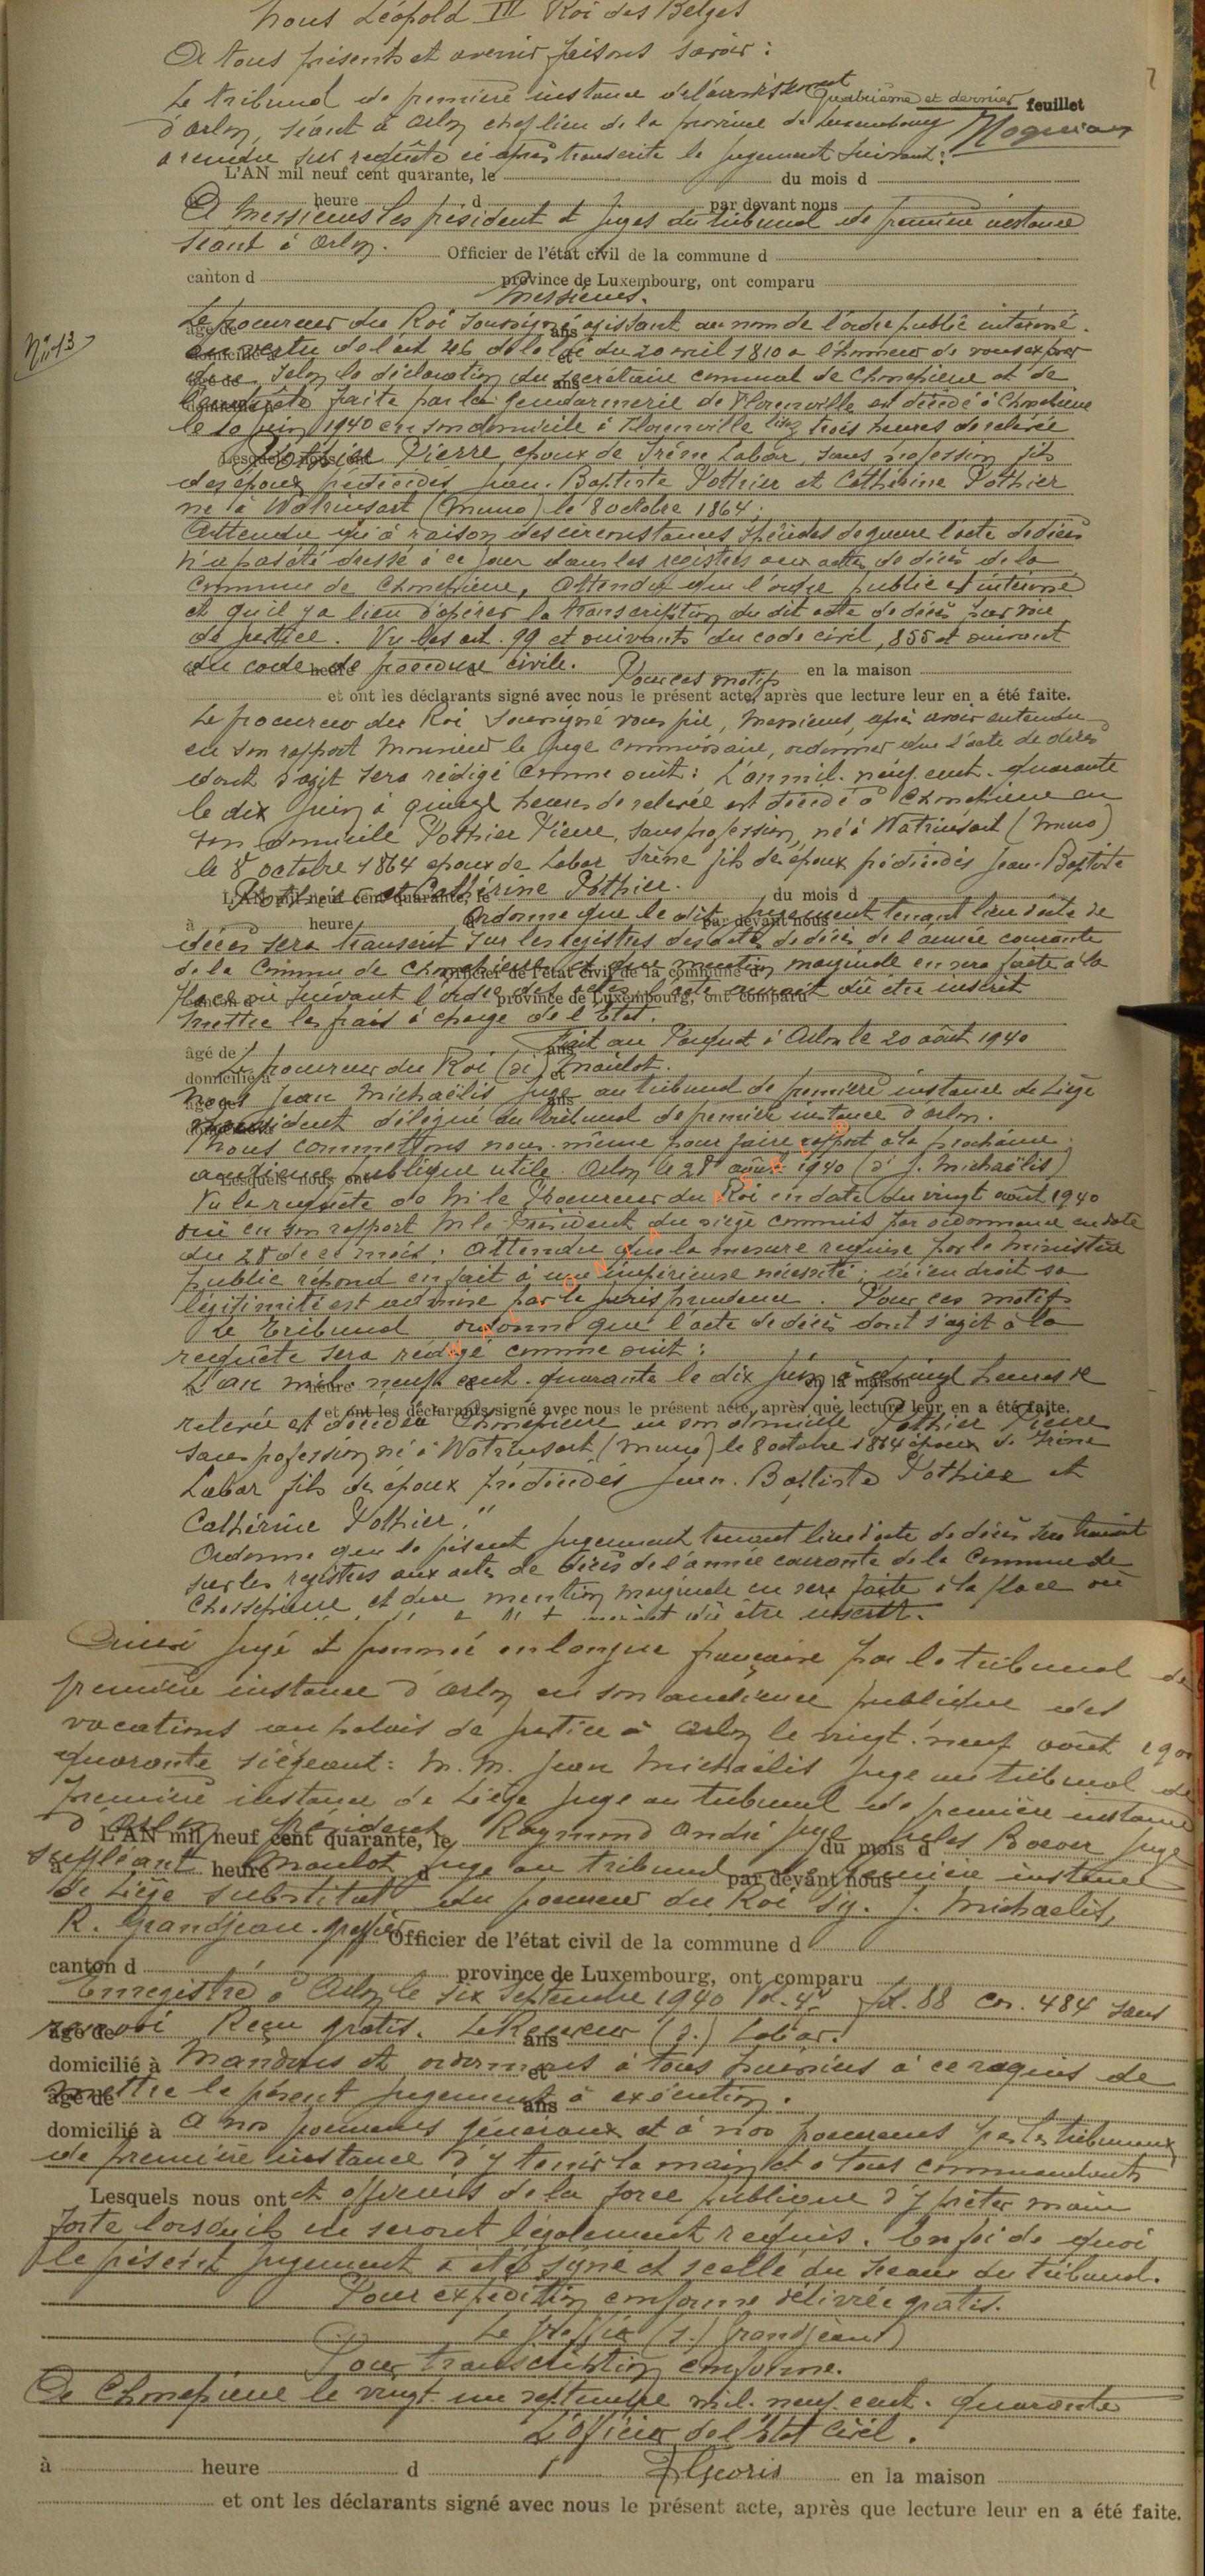 Nous Léopold III Roi des Belges
A tous présents et avenir faisons savoir :
Le tribunal de première instance de l'arrondissement
Quatrième et dernier feuillet
d'Arlon, séant à Arlon chef lieu de la province de Luxembourg
a rendu sur requête ci après transcrite le jugement suivant :
L'AN mil neuf cent quarante, le du mois d
heure d par devant nous
A Messieurs les président et juges du tribunal de première instance
séant à Arlon. Officier de l'état civil de la commune d
canton d province de Luxembourg, ont comparu
Messieurs.
Le procureur du Roi soussigné agissant au nom de l'ordre public intéressé
âgé de ans
N° 13
en vertu de l'art 46 de la loi du 20 avril 1810 a l'honneur de vous exposer
domicilié à et
que selon la déclaration du secrétaire communal de Chassepierre et de
âgé de ans
l'enquête faite par la gendarmerie de Florenville est décédé à Chassepierre
le 10 juin 1940 en son domicile à Florenville lisez trois heures de relevée
Lesquels nous ont
Pothier Pierre, époux de Irène Labar, sans profession fils
des époux prédécédés Jean-Baptiste Pothier et Cathérine Pothier
né à Watrinsart (Muno) le 8 octobre 1864 ;
Attendu qu'à raison des circonstances spéciales de guerre l'acte de décès
n'a pas été dressé à ce jour dans les registres aux actes de décès de la
commune de Chassepierre, Attendu que l'ordre public est intéressé
et qu'il y a lieu d'opérer la transcription du dit acte de décès par voie
de justice. Vu les art. 99 et suivants du code civil, 855 et suivant
du code de procédure civile. Pour ces motifs
à heure d en la maison
et ont les déclarants signé avec nous le présent acte, après que lecture leur en a été faite.
Le procureur du Roi soussigné vous prie, Messieurs, après avoir entendu
en son rapport Monsieur le juge commissaire, ordonner que l'acte de décès
dont s'agit sera rédigé comme suit : L'an mil. neuf. cent. quarante
le dix juin à quinze heures de relevée est décédé à Chassepierre en
son domicile Pothier Pierre, sans profession, né à Watrinsart (Muno)
le 8 octobre 1864 époux de Labar Irène fils des époux prédécédés Jean-Baptiste
Pothier et Cathérine Pothier.
L'AN mil neuf cent quarante, le du mois d
Ordonne que le dit jugement tenant lieu d'acte de
à heure d par devant nous
décès sera transcrit sur les registres des actes de décès de l'année courante
de la Commune de Chassepierre et que mention marginale en sera faite à la
Officier de l'état civil de la commune d
place où suivant l'ordre des actes l'acte aurait dû être inscrit
canton d province de Luxembourg, ont comparu
Mettre les frais à charge de l'Etat.
Fait au Parquet à Arlon le 20 août 1940
âgé de ans
Le procureur du Roi (s) Maulot.
domicilié à et
Nous Jean Michaëlis juge au tribunal de première instance de Liège
âgé de ans
président délégué au tribunal de première instance d'Arlon.
domicilié à
Nous commettons nous-même pour faire rapport à la prochaine
audience publique utile. Arlon le 28 août 1940 (s) J. Michaëlis)
Lesquels nous ont
Vu la requête de M le Procureur du Roi en date du vingt août 1940
ouï en son rapport M le Président du siège commis par ordonnance en date
du 28 de ce mois ; Attendu que la mesure requise par le Ministère
public répond en fait à une impérieuse nécessité ; qu'en droit sa
légitimité est admise par la jurisprudence. Pour ces motifs
Le Tribunal ordonne que l'acte de décès dont s'agit à la
requête sera rédigé comme suit :
L'an mil. neuf. cent. quarante le dix juin à quinze heures de
à heure d en la maison
et ont les déclarants signé avec nous le présent acte, après que lecture leur en a été faite.
relevée est décédé à Chassepierre en son domicile Pothier Pierre
sans profession né à Watrinsart (Muno) le 8 octobre 1864 époux de Irène
Labar fils des époux prédécédés Jean-Baptiste Pothier et
Cathérine Pothier."
Ordonne que le présent jugement tenant lieu d'acte de décès sera transcrit
sur les registres aux actes de décès de l'année courante de la Commune de
Chassepierre et que mention marginale en sera faite à la place où
aurait dû être inscrit.
Ainsi jugé et prononcé en langue française par le tribunal de
première instance d'Arlon en son audience publique des
vacations au palais de justice à Arlon le vingt-neuf août 190
quarante siégeant : M. M. Jean Michaëlis juge au tribunal de
première instance de Liège juge au tribunal de première instance
d'Arlon président Raymond André juge Jules Bover juge
L'AN mil neuf cent quarante, le du mois d
suppléant Maulot juge au tribunal de première instance
à heure d par devant nous
de Liège substitut du procureur du Roi sig. J. Michaelis,
R. Grandjean. greffier
Officier de l'état civil de la commune d
canton d province de Luxembourg, ont comparu
Enregistré à Arlon le six septembre 1940 Vol. 4 fol. 88 cas. 484 sans
renvoi Reçu gratis. Le Receveur (s.) Labar.
âgé de ans
domicilié à et
Mandons et ordonnons à tous huissiers à ce requis de
mettre le présent jugement à exécution.
âgé de ans
domicilié à
A nos procureurs généraux et à nos procureurs près les tribunaux
de première instance d'y tenir la main et à tous commandants
Lesquels nous ont
et officiers de la force publique d'y prêter main
forte lorsqu'ils en seront légalement requis. En foi de quoi
le présent jugement a été signé et scellé du sceau du tribunal.
Pour expédition conforme délivrée gratis.
Le greffier (s.) Grandjean)
Pour transcription conforme.
A Chassepierre le vingt-un septembre mil. neuf. cent. quarante
L'Officier de l'Etat Civil.
à heure d en la maison
et ont les déclarants signé avec nous le présent acte, après que lecture leur en a été faite.